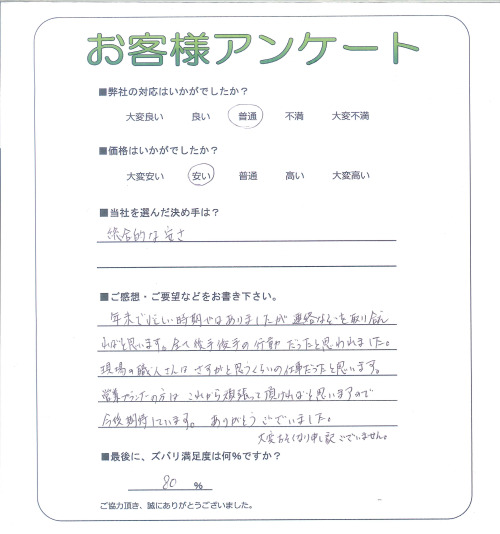 お客様アンケート
■弊社の対応はいかがでしたか?
大変良い 良い 普通 不満 大変不満
■価格はいかがでしたか?
大変安い 安い 普通 高い 大変高い
■当社を選んだ決め手は?
総合的な安さ
■ご感想・ご要望などをお書き下さい。
年末で忙しい時期ではありましたが 連絡などを取り合え
ればと思います。全て後手後手の行動だったと思われました。
現場の職人さんは さすがと思うくらいの仕事だったと思います。
営業プランナーの方は これから頑張って頂ければと思いますので
今後期待しています。 ありがとうございました。
大変おそくなり申し訳ございません。
■最後に、ズバリ満足度は何%ですか?
80 %
ご協力頂き、誠にありがとうございました。